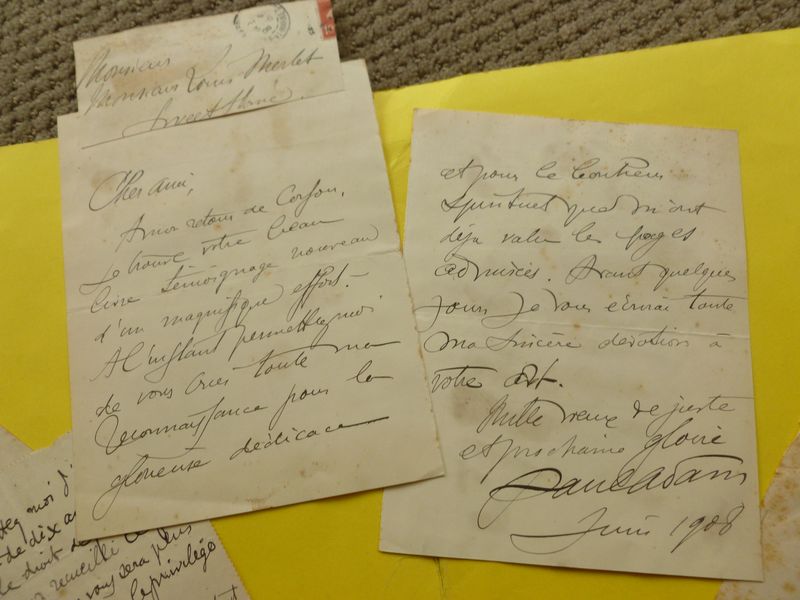 Monsieur
Monsieur Louis Merlet
Cher ami,
A mon retour de
Je trouve votre beau
livre témoignage nouveau
d'un magnifique effort.
A l'instant permettez moi
de vous crier toute ma
reconnaissance pour la
glorieuse dédicace
et pour le bonheur
spirituel que m'ont
déjà valu les pages
admirées. Avant quelques
jours je vous écrirai toute
ma sincère dévotion à
votre art.
Mille vœux de juste
et prochaine gloire
Paul Adam
Juin 1908
moi
de dix
le droit de
recueilli
vous sera plus
le privilège